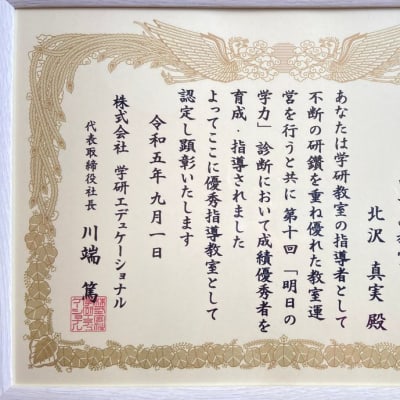 北沢 真実 殿
あなたは学研教室の指導者として
不断の研鑽を重ね優れた教室運
営を行うと共に第十回「明日の
学力」診断において成績優秀者を
育成・指導されました
よってここに優秀指導教室として
認定し顕彰いたします
令和五年九月一日
株式会社 学研エデュケーショナル
代表取締役社長 川端 篤